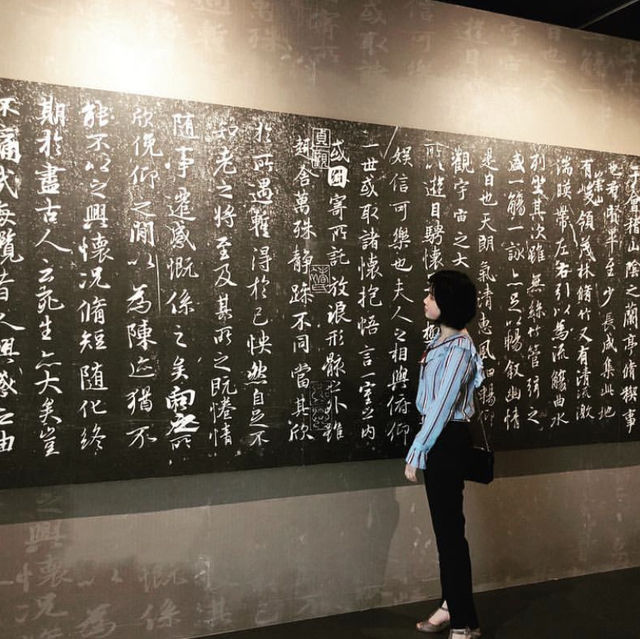 于會稽山陰之蘭亭脩稧事
也羣賢畢至少長咸集此地
有崇山峻領茂林脩竹又有清流激
湍暎帶左右引以為流觴曲水
列坐其次雖無絲竹管弦之
盛一觴一詠亦足以暢叙幽情
是日也天朗氣清惠風和暢仰
觀宇宙之大
所以遊目騁懷
娛信可樂也夫人之相與俯仰
一世或取諸懷抱悟言一室之內
貞觀
或因寄所託放浪形骸之外雖
趣舍萬殊靜躁不同當其欣
於所遇暫得於己怏然自足不
知老之將至及其所之既惓情
隨事遷感慨係之矣向之所
欣俛仰之閒以為陳迹猶不
能不以之興懷況脩短隨化終
期於盡古人云死生亦大矣豈
不痛哉每攬昔人興感之由